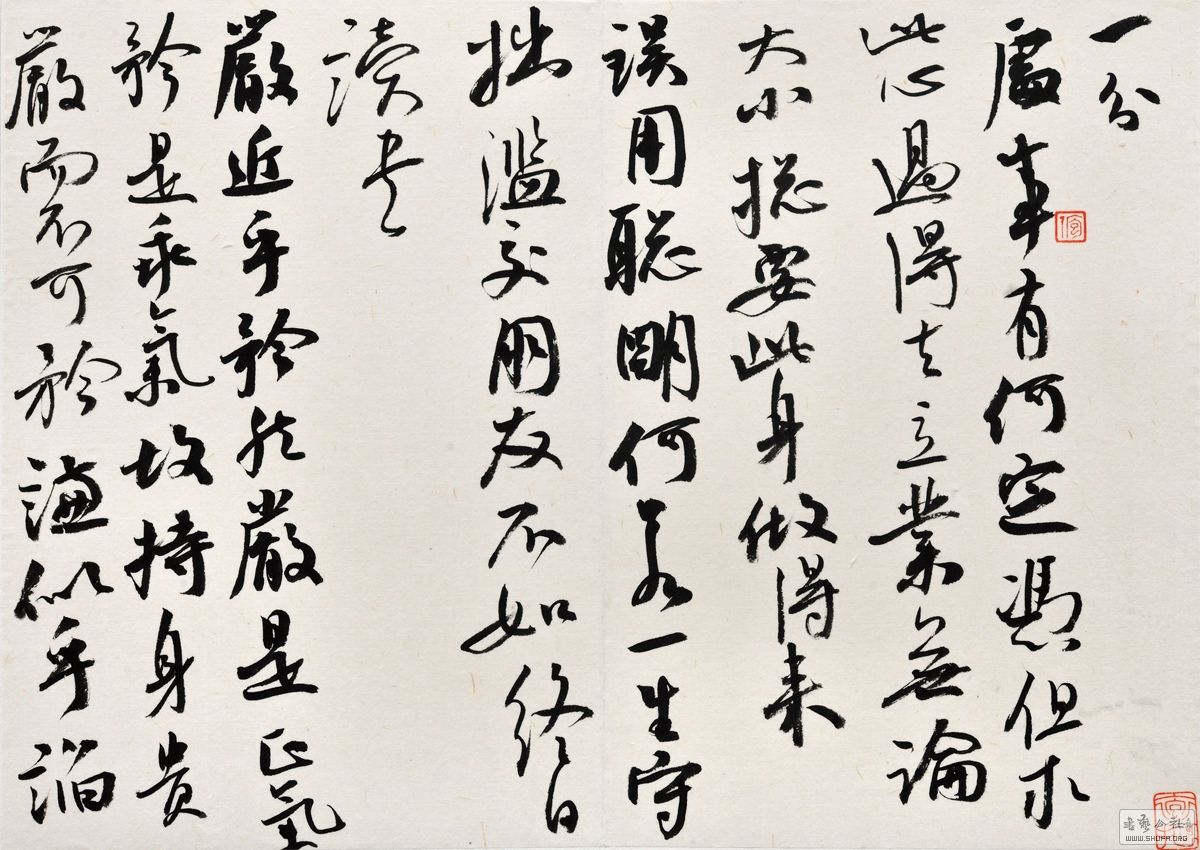 一分
處事有何定憑但求
此心過得去立業無論
大小揔要此身做得来
误用聪明何若一生守
拙滥交朋友不如终日
读书
嚴近乎矜然嚴是正氣
矜是乖氣故持身贵
嚴而不可矜謙似乎謟
WWW.SHUFA.ORG